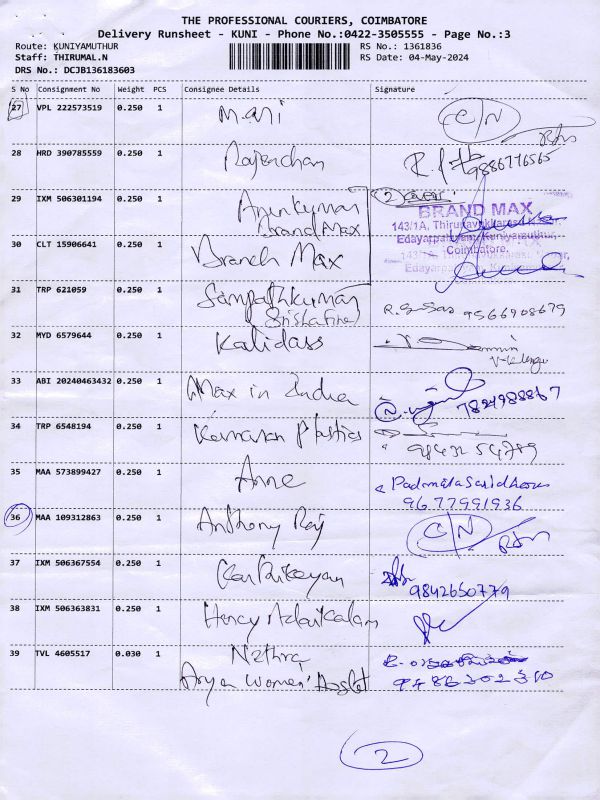 THE PROFESSIONAL COURIERS, COIMBATORE
Delivery Runsheet - KUNI - Phone No.:0422-3505555 - Page No.:3
Route: KUNIYAMUTHUR
RS No.: 1361836
Staff: THIRUMAL.N
RS Date: 04-May-2024
DRS No.: DCJB136183603
S No Consignment No Weight PCS Consignee Details Signature
27 VPL 222573519 0.250 1 Mani C/N
28 HRD 390785559 0.250 1 Rajendran 9886776565
29 IXM 506301194 0.250 1 Arunkumar 2
Brand Max
BRAND MAX
143/1A,
Edayarpalayam, Kuniyamuthur,
Coimbatore.
30 CLT 15906641 0.250 1 Branch Max
31 TRP 621059 0.250 1 Sampathkumar 9566908679
32 MYD 6579644 0.250 1 Kalidass
33 ABI 20240463432 0.250 1 Max in India 7824988867
34 TRP 6548194 0.250 1 Kamaran Plastics
35 MAA 573899427 0.250 1 Anne
9677991936
36 MAA 109312863 0.250 1 Anthony Raj C/N
37 IXM 506367554 0.250 1 Karthikeyan 9842650779
38 IXM 506363831 0.250 1 Henry Adaikalam
39 TVL 4605517 0.030 1 Nethra
Arya Women's 9486302310
2